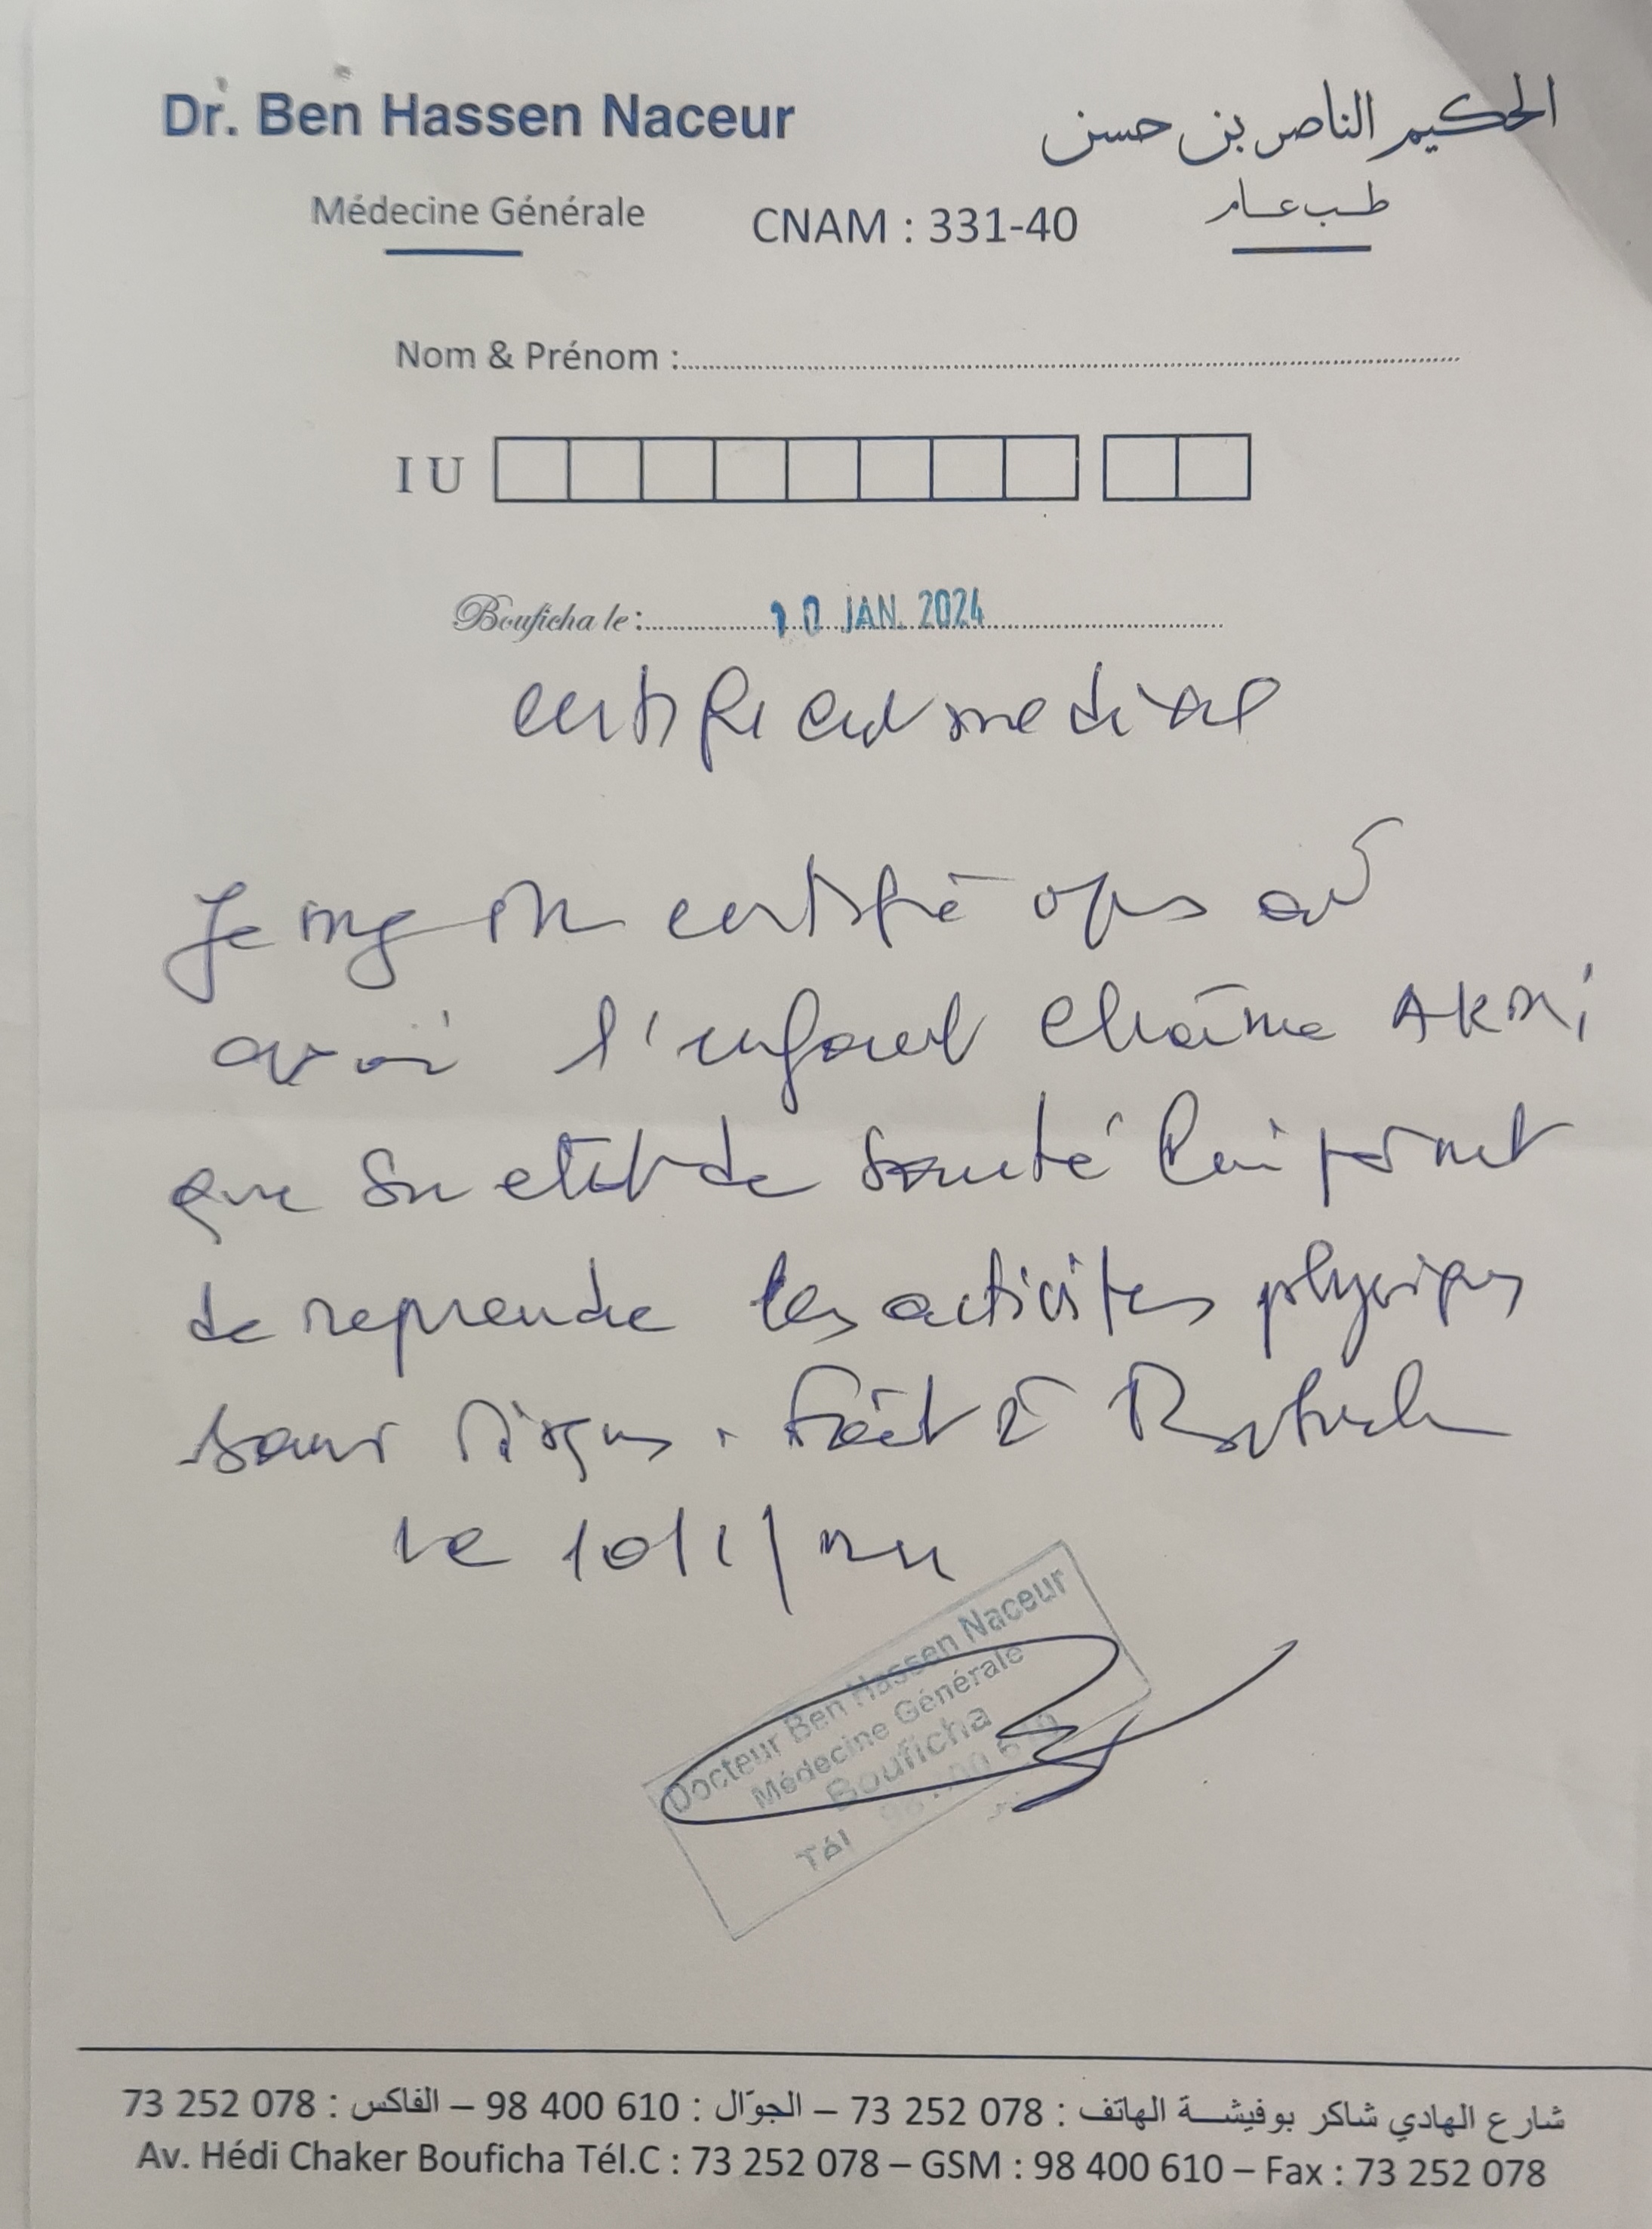 Dr. Ben Hassen Naceur
الحكيم الناصر بن حسن
Médecine Générale
CNAM : 331-40
طب عام
Nom & Prénom :
I U
Bouficha le : 10 JAN. 2024
certificat medical
Je certifie
avoir l'enfant Chaïma AKRMI
que son etat de santé lui permet
de reprendre les activités physiques
sans risque. Fait à
le 10/1/24
Docteur Ben Hassen Naceur
Médecine Générale
Bouficha
Tél
شارع الهادي شاكر بوفيشة الهاتف : 73 252 078 – الجوّال : 98 400 610 – الفاكس : 73 252 078
Av. Hédi Chaker Bouficha Tél.C : 73 252 078 – GSM : 98 400 610 – Fax : 73 252 078